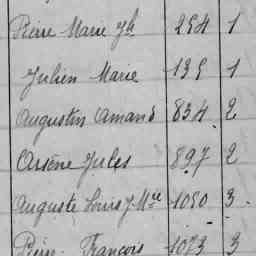 Pierre Marie Jh 254 1
Julien Marie 135 1
Augustin Amand 834 2
Arsène Jules 897 2
Auguste Louis J. Mie 1050 3
Pierre François 1073 3